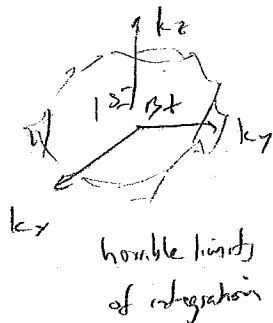 kz
1st BZ
ky
kx
horrible limits
of integration